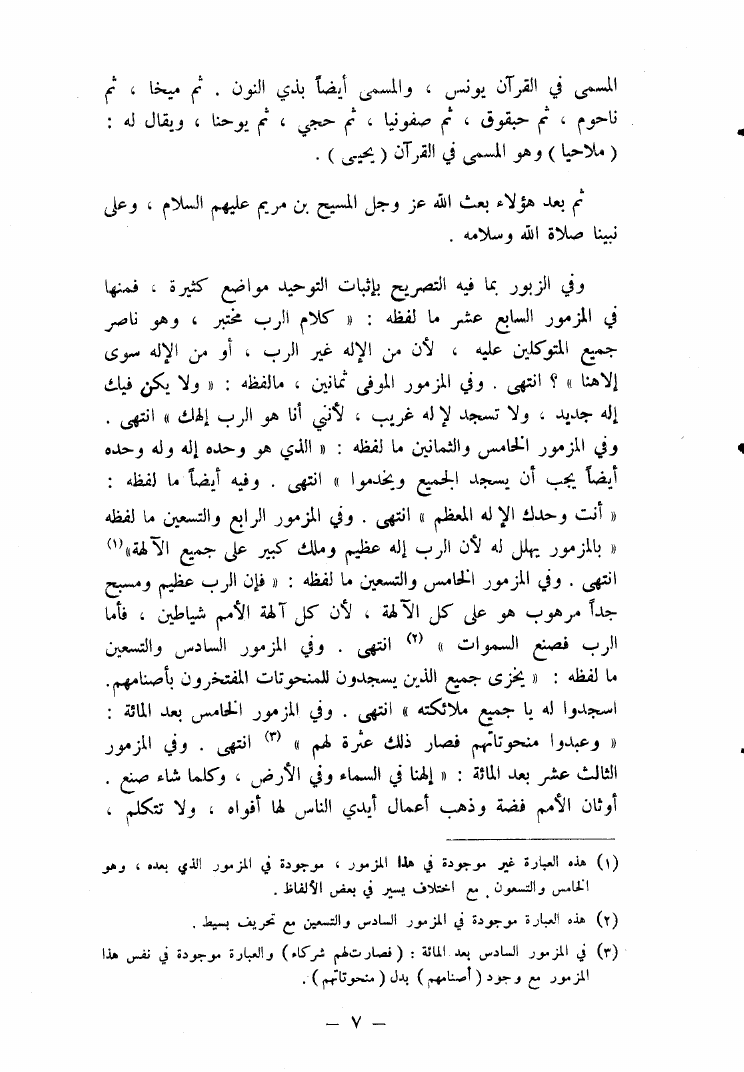 المسمى في القرآن يونس ، والمسمى أيضاً بذي النون . ثم ميخا ، ثم
ناحوم ، ثم حبقوق ، ثم صفونيا ، ثم حجي ، ثم يوحنا ، ويقال له :
( ملاحيا ) وهو المسمى في القرآن ( يحيى ) .
ثم بعد هؤلاء بعث الله عز وجل المسيح بن مريم عليهم السلام ، وعلى
نبينا صلاة الله وسلامه .
وفي الزبور بما فيه التصريح بإثبات التوحيد مواضع كثيرة ، فمنها
في المزمور السابع عشر ما لفظه : « كلام الرب مختبر ، وهو ناصر
جميع المتوكلين عليه ، لأن من الإله غير الرب ، أو من الإله سوى
إلاهنا » ؟ انتهى . وفي المزمور الموفى ثمانين ، مالفظه : « ولا يكن فيك
إله جديد ، ولا تسجد لإله غريب ، لأنني أنا هو الرب إلهك » انتهى .
وفي المزمور الخامس والثمانين ما لفظه : « الذي هو وحده إله وله وحده
أيضاً يجب أن يسجد الجميع ويخدموا » انتهى . وفيه أيضاً ما لفظه :
« أنت وحدك الإله المعظم » انتهى . وفي المزمور الرابع والتسعين ما لفظه
« بالمزمور يهلل له لأن الرب إله عظيم وملك كبير على جميع الآلهة» (١)
انتهى . وفي المزمور الخامس والتسعين ما لفظه : « فإن الرب عظيم ومسبح
جداً مرهوب هو على كل الآلهة ، لأن كل آلهة الأمم شياطين ، فأما
الرب فصنع السموات » (٢) انتهى . وفي المزمور السادس والتسعين
ما لفظه : « يخزى جميع الذين يسجدون للمنحوتات المفتخرون بأصنامهم.
اسجدوا له يا جميع ملائكته » انتهى . وفي المزمور الخامس بعد المائة :
« وعبدوا منحوتاتهم فصار ذلك عثرة لهم » (٣) انتهى . وفي المزمور
الثالث عشر بعد المائة : « إلهنا في السماء وفي الأرض ، وكلما شاء صنع .
أوثان الأمم فضة وذهب أعمال أيدي الناس لها أفواه ، ولا تتكلم ،
(١) هذه العبارة غير موجودة في هذا المزمور ، موجودة في المزمور الذي بعده ، وهو
الخامس والتسعون . مع اختلاف يسير في بعض الألفاظ .
(٢) هذه العبارة موجودة في المزمور السادس والتسعين مع تحريف بسيط .
(٣) في المزمور السادس بعد المائة : ( فصارت لهم شركاء ) والعبارة موجودة في نفس هذا
المزمور مع وجود ( أصنامهم ) بدل ( منحوتاتهم ) .
— ٧ —